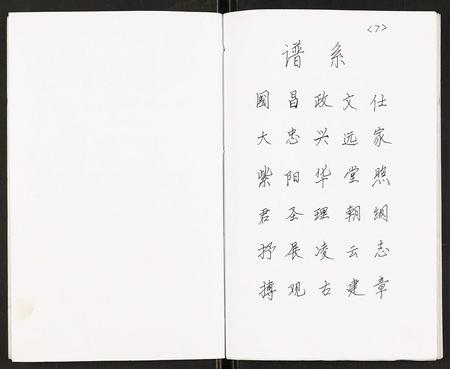 <7>
谱系
國昌政文仕
大忠兴远家
紫阳华堂照
君圣理朝纲
抒展凌云志
搏观古建章